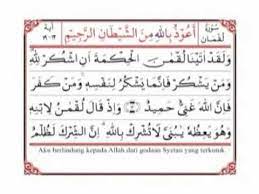 سورة لقمان
أَعُوْذُ بِاللّٰهِ مِنَ الشَّيْطَانِ الرَّجِيْمِ
آية
وَلَقَدْ اٰتَيْنَا لُقْمٰنَ الْحِكْمَةَ اَنِ اشْكُرْ لِلّٰهِ
وَمَنْ يَّشْكُرْ فَاِنَّمَا يَشْكُرُ لِنَفْسِهٖ وَمَنْ كَفَرَ
فَاِنَّ اللّٰهَ غَنِيٌّ حَمِيْدٌ وَاِذْ قَالَ لُقْمٰنُ لِابْنِهٖ
وَهُوَ يَعِظُهٗ يٰبُنَيَّ لَا تُشْرِكْ بِاللّٰهِ اِنَّ الشِّرْكَ لَظُلْمٌ
Aku berlindung kepada Allah dari godaan Syetan yang terkutuk